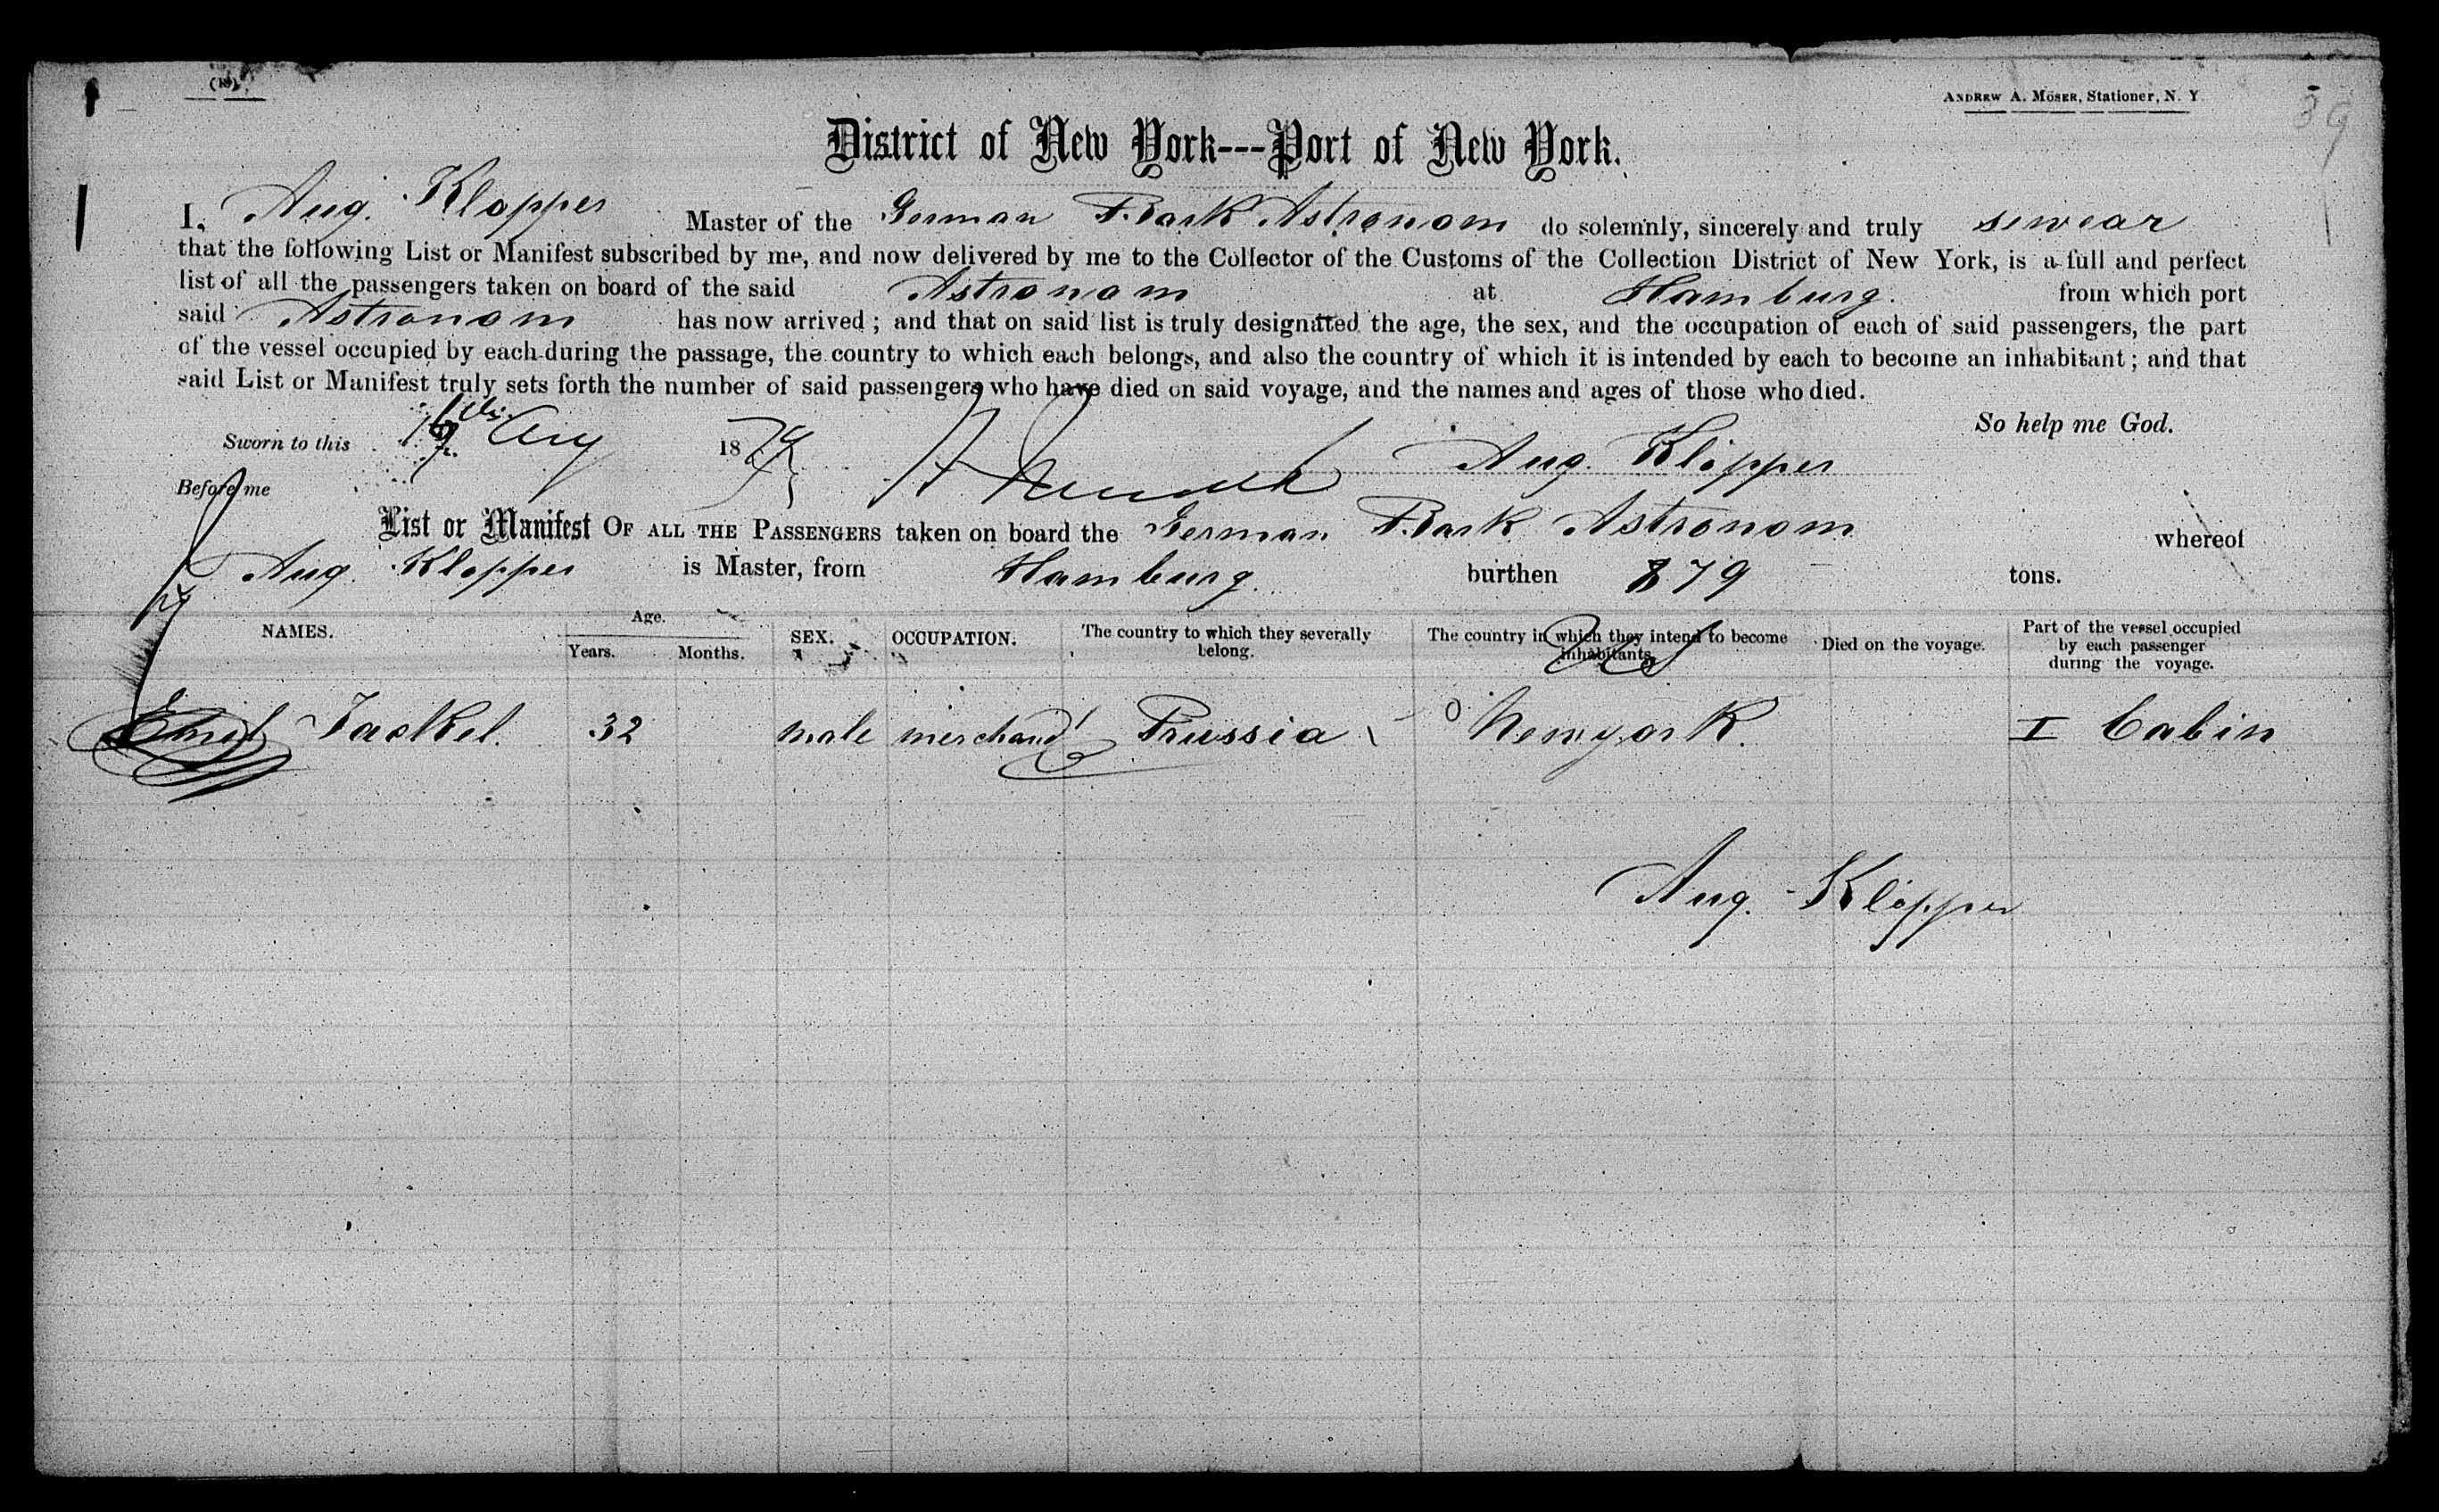 (18)
ANDREW A. MOSER, Stationer, N. Y
39
District of New York---Port of New York.
I, Aug. Klopper Master of the German Bark Astronom do solemnly, sincerely and truly sewear
that the following List or Manifest subscribed by me, and now delivered by me to the Collector of the Customs of the Collection District of New York, is a full and perfect
list of all the passengers taken on board of the said Astronom at Hamburg. from which port
said Astronom has now arrived; and that on said list is truly designated the age, the sex, and the occupation of each of said passengers, the part
of the vessel occupied by each during the passage, the country to which each belongs, and also the country of which it is intended by each to become an inhabitant; and that
said List or Manifest truly sets forth the number of said passengers who have died on said voyage, and the names and ages of those who died.
So help me God.
Sworn to this Aug 1879 Aug. Klopper
Before me
List or Manifest OF ALL THE PASSENGERS taken on board the German Bark Astronom whereof
Aug. Klopper is Master, from Hamburg. burthen 879 tons.
NAMES. Age. Years. Months. SEX. OCCUPATION. The country to which they severally belong. The country in which they intend to become inhabitants. Died on the voyage. Part of the vessel occupied by each passenger during the voyage.
US
Jackel. 32 male merchand Prussia Newyork. I Cabin
Aug. Klopper